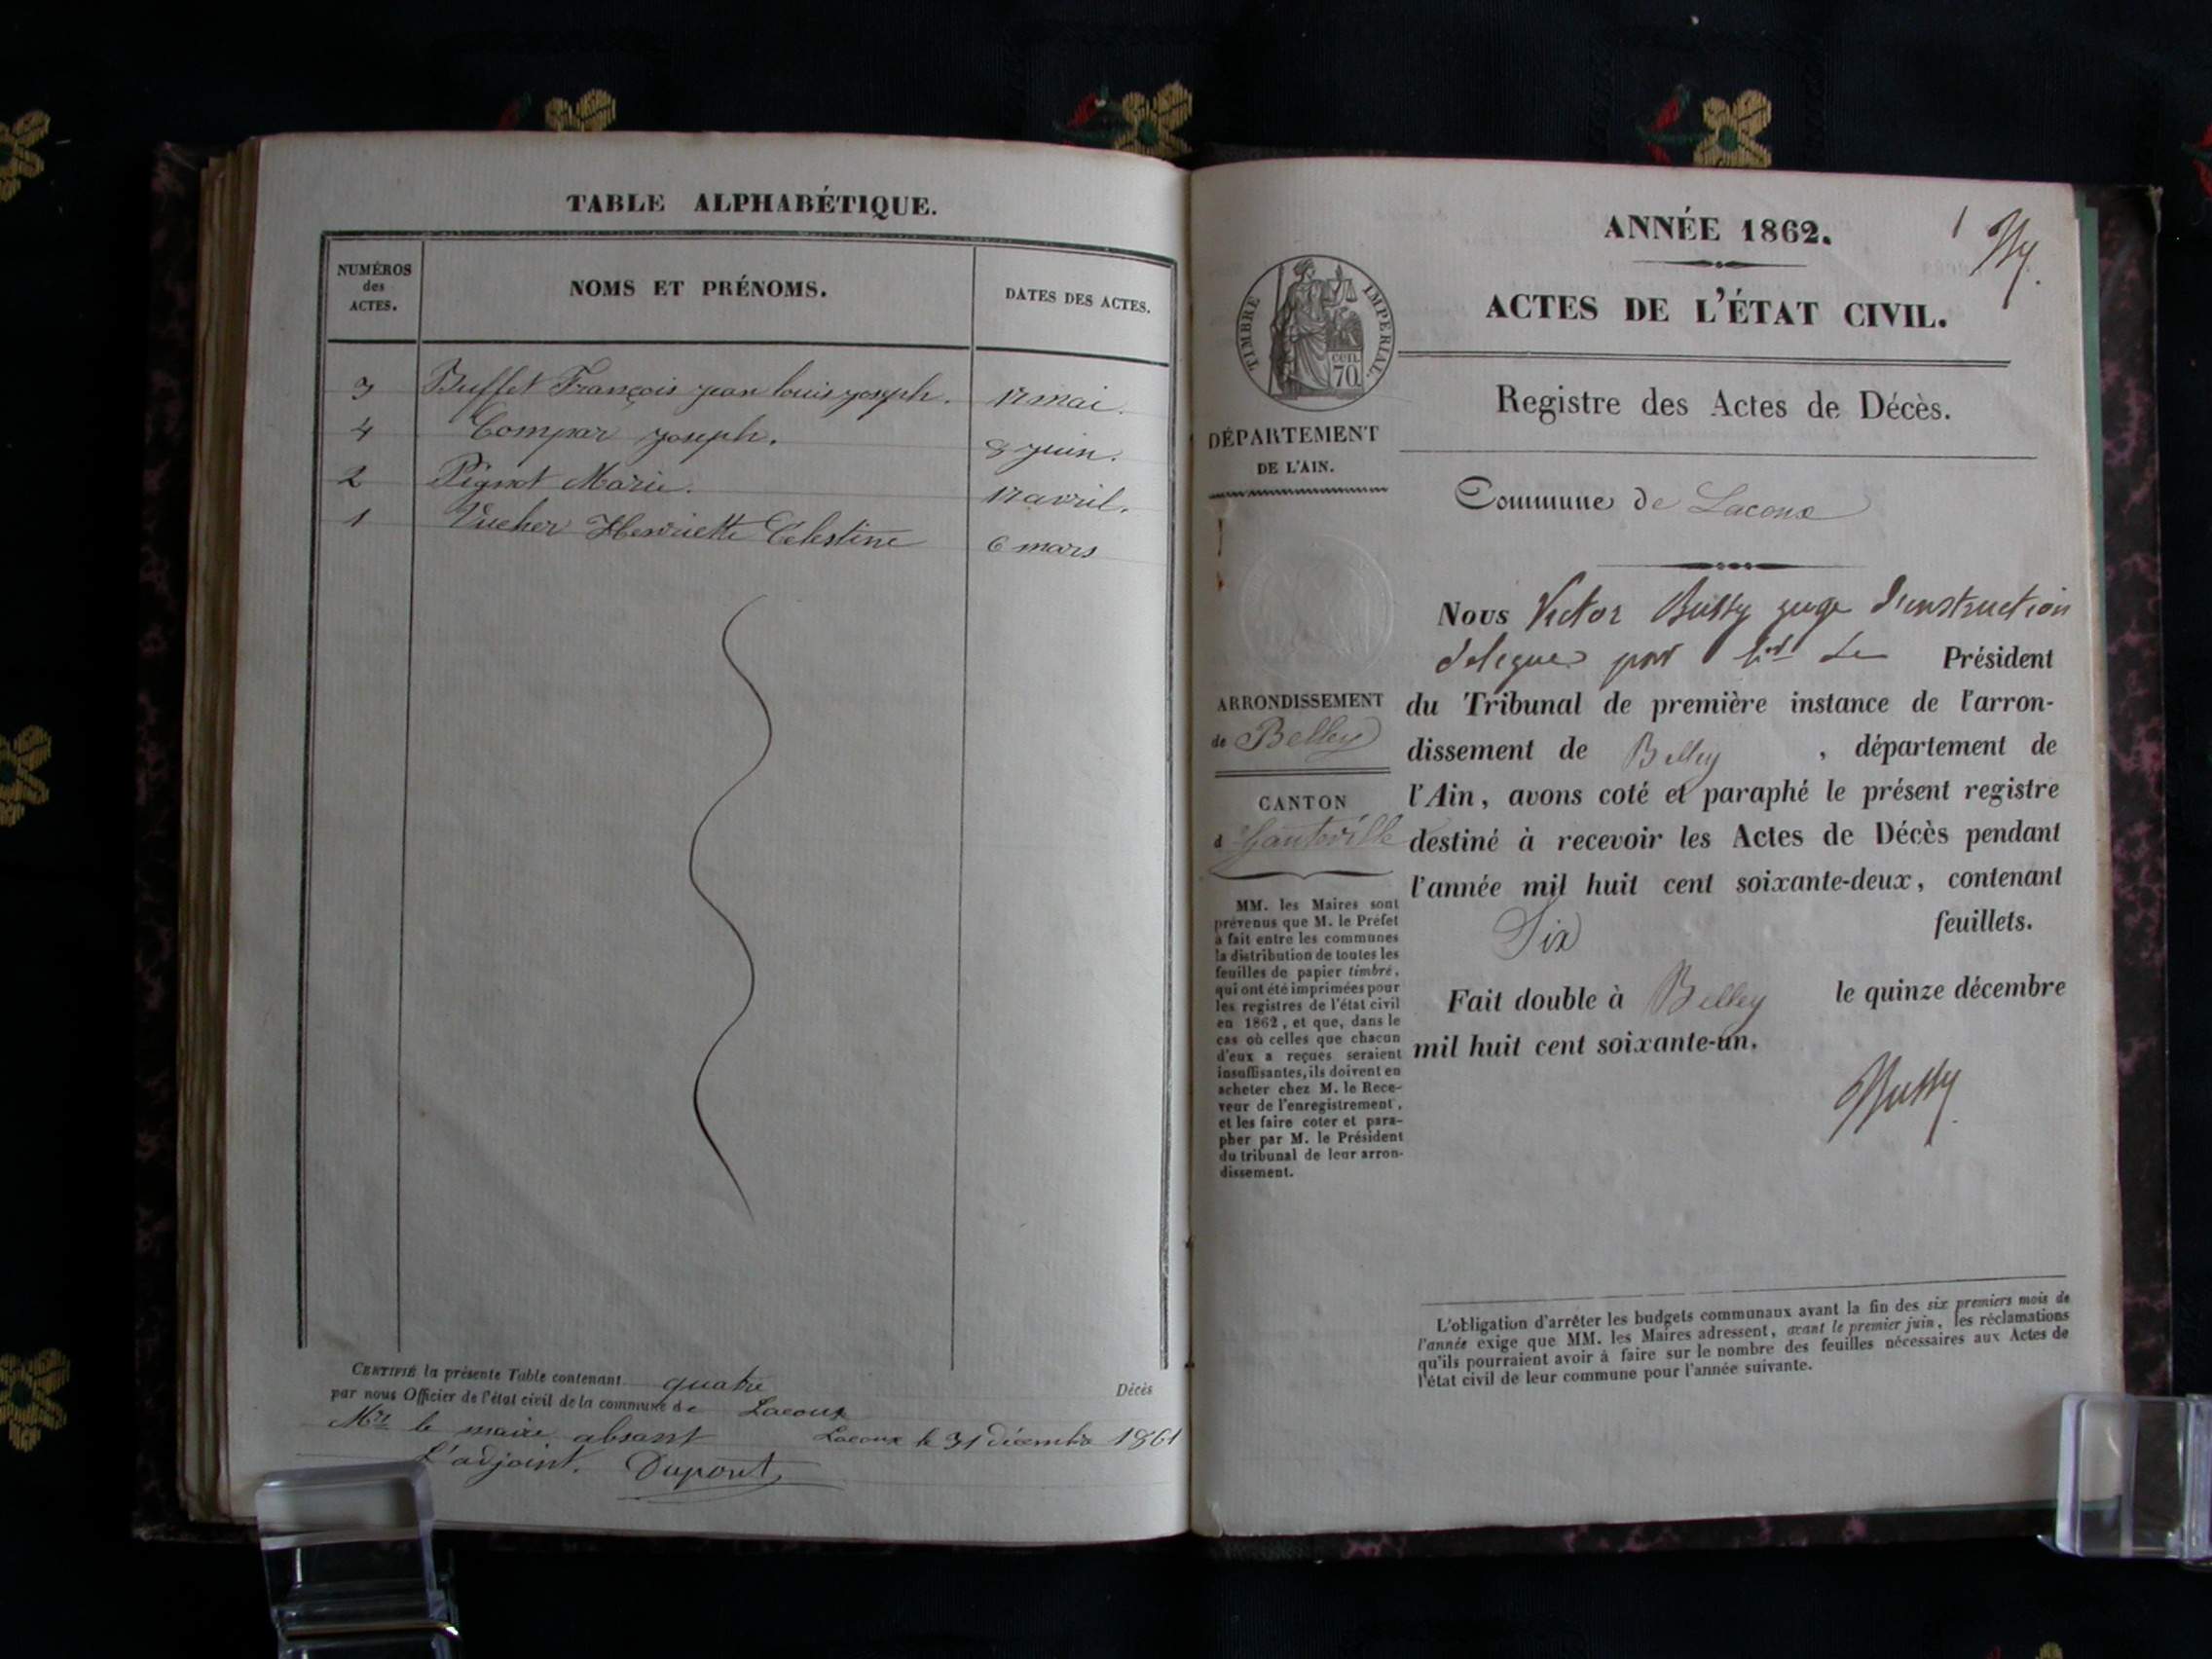 TABLE ALPHABÉTIQUE.
NUMÉROS
des
ACTES.
NOMS ET PRÉNOMS.
DATES DES ACTES.
3 Buffet François jean louis joseph. 17 mai.
4 Compar joseph. 8 juin.
2 Pignot Marie. 17 avril.
1 Vucher Henriette Celestine 6 mars
CERTIFIÉ la présente Table contenant quatre Décès
par nous Officier de l'état civil de la commune de Lacoux
Mr le maire absant Lacoux le 31 décembre 1861
L'adjoint. Dupont
1
ANNÉE 1862.
ACTES DE L'ÉTAT CIVIL.
TIMBRE IMPERIAL.
cen.
70
Registre des Actes de Décès.
DÉPARTEMENT
DE L'AIN.
Commune de Lacoux
Nous Victor Bussy juge d'instruction
delegué par le Président
ARRONDISSEMENT
de Belley
du Tribunal de première instance de l'arron-
dissement de Belley, département de
l'Ain, avons coté et paraphé le présent registre
destiné à recevoir les Actes de Décès pendant
l'année mil huit cent soixante-deux, contenant
Six feuillets.
Fait double à Belley le quinze décembre
mil huit cent soixante-un.
Bussy
CANTON
d'hauteville
MM. les Maires sont
prévenus que M. le Préfet
a fait entre les communes
la distribution de toutes les
feuilles de papier timbré,
qui ont été imprimées pour
les registres de l'état civil
en 1862, et que, dans le
cas où celles que chacun
d'eux a reçues seraient
insuffisantes, ils doivent en
acheter chez M. le Rece-
veur de l'enregistrement,
et les faire coter et para-
pher par M. le Président
du tribunal de leur arron-
dissement.
L'obligation d'arrêter les budgets communaux avant la fin des six premiers mois de
l'année exige que MM. les Maires adressent, avant le premier juin, les réclamations
qu'ils pourraient avoir à faire sur le nombre des feuilles nécessaires aux Actes de
l'état civil de leur commune pour l'année suivante.